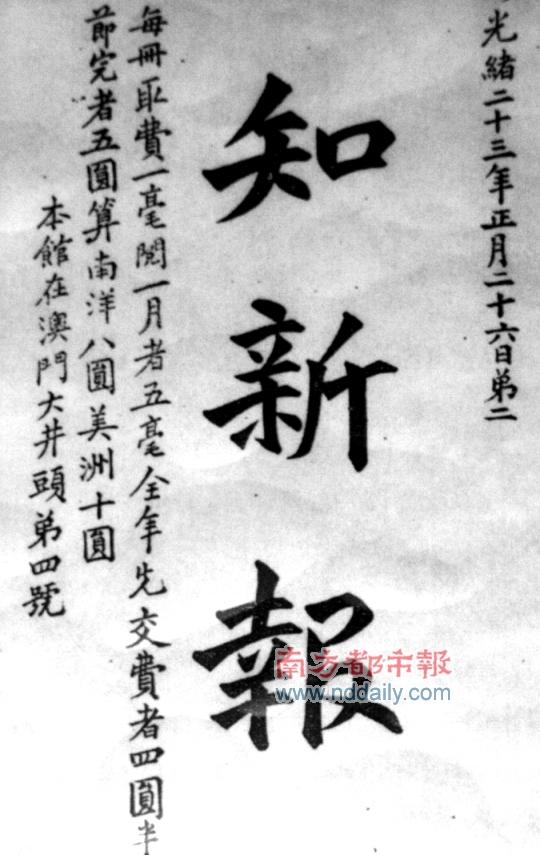 光緒二十三年正月二十六日第二
知新報
每冊取費一毫閱一月者五毫全年先交費者四圓半
節完者五圓算南洋八圓美洲十圓
本館在澳門大井頭第四號
南方都市報
www.nddaily.com